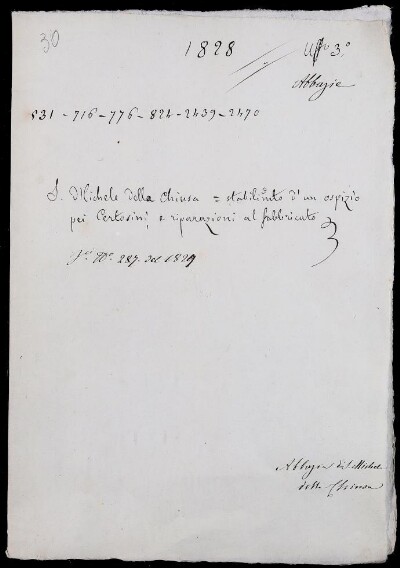 30
1828
Uffo 3.o
Abbazie
831 - 716 - 776 - 824 - 2439 - 2470
S. Michele della Chiusa = stabilimto d'un ospizio
pei Certosini, e riparazioni al fabbricato
287 del 1829
Abbazia di S. Michele
della Chiusa